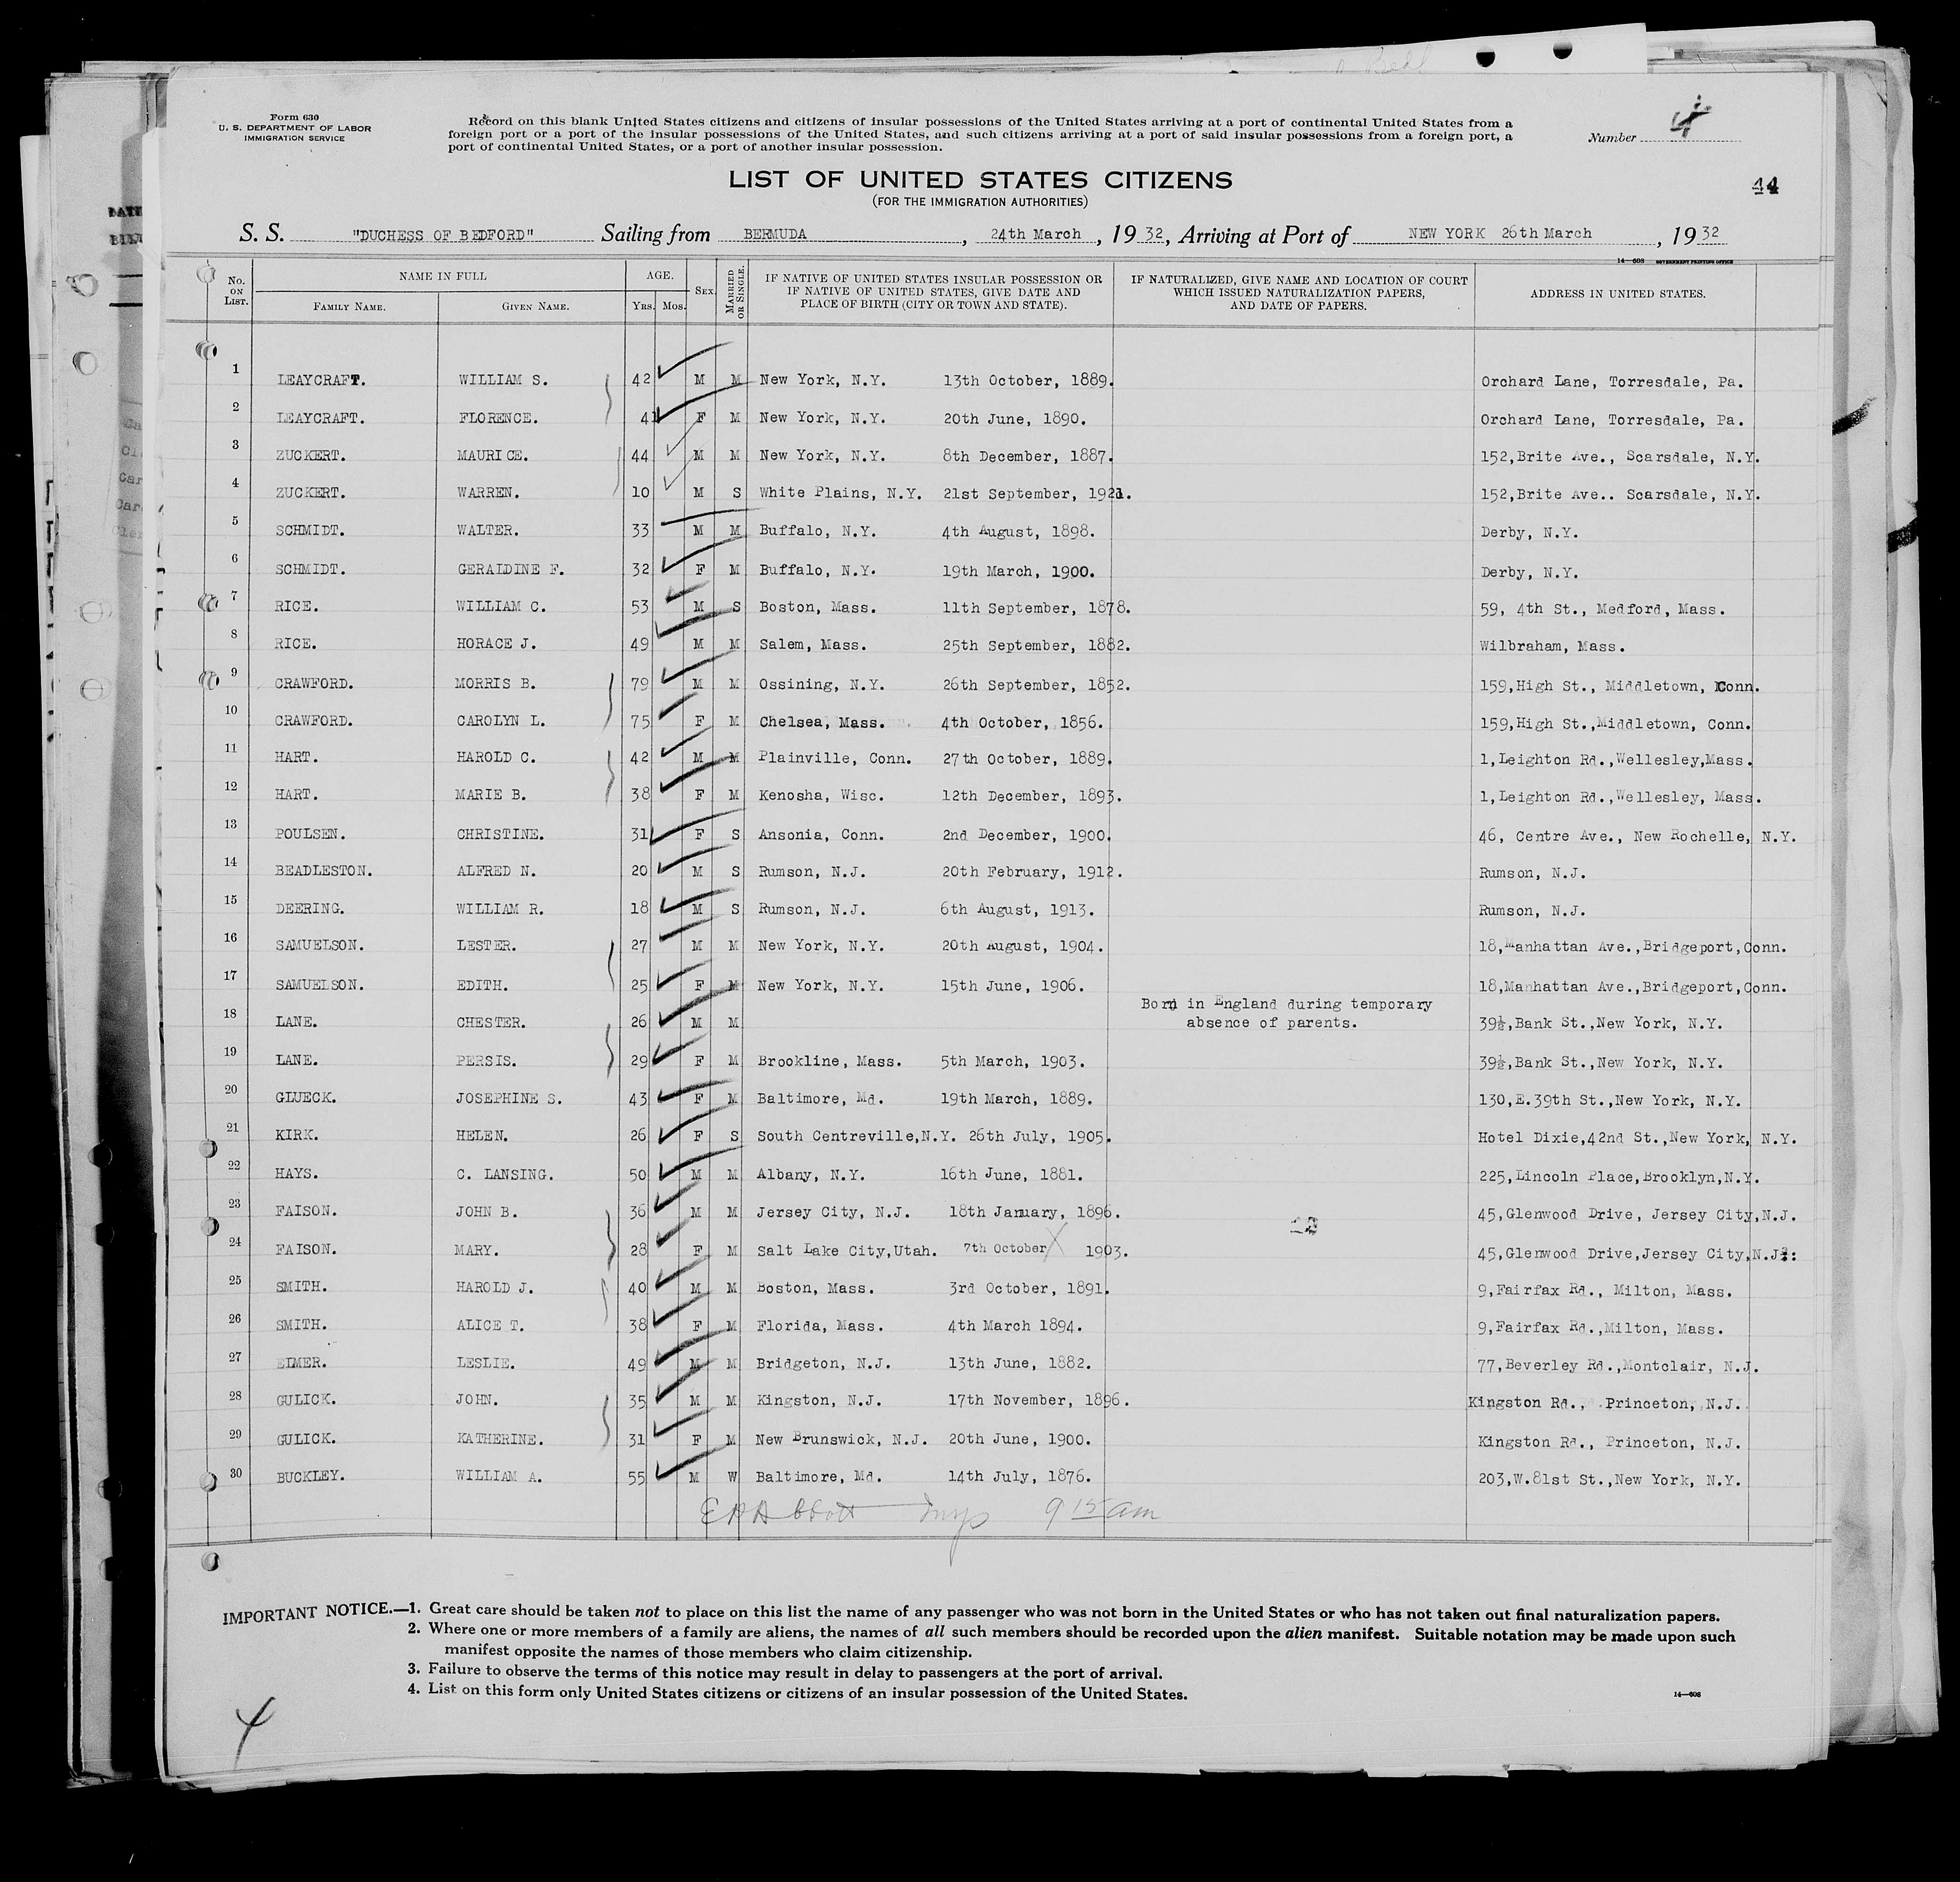 Form 630
U. S. DEPARTMENT OF LABOR
IMMIGRATION SERVICE
Record on this blank United States citizens and citizens of insular possessions of the United States arriving at a port of continental United States from a
foreign port or a port of the insular possessions of the United States, and such citizens arriving at a port of said insular possessions from a foreign port, a
port of continental United States, or a port of another insular possession.
Number 4
44
LIST OF UNITED STATES CITIZENS
(FOR THE IMMIGRATION AUTHORITIES)
S. S. "DUCHESS OF BEDFORD" Sailing from BERMUDA, 24th March, 1932, Arriving at Port of NEW YORK 26th March, 1932
14—608 GOVERNMENT PRINTING OFFICE
No. ON LIST. NAME IN FULL FAMILY NAME. GIVEN NAME. AGE. Yrs. Mos. SEX. MARRIED OR SINGLE. IF NATIVE OF UNITED STATES INSULAR POSSESSION OR IF NATIVE OF UNITED STATES, GIVE DATE AND PLACE OF BIRTH (CITY OR TOWN AND STATE). IF NATURALIZED, GIVE NAME AND LOCATION OF COURT WHICH ISSUED NATURALIZATION PAPERS, AND DATE OF PAPERS. ADDRESS IN UNITED STATES.
1 LEAYCRAFT. WILLIAM S. 42 M M New York, N.Y. 13th October, 1889. Orchard Lane, Torresdale, Pa.
2 LEAYCRAFT. FLORENCE. 41 F M New York, N.Y. 20th June, 1890. Orchard Lane, Torresdale, Pa.
3 ZUCKERT. MAURICE. 44 M M New York, N.Y. 8th December, 1887. 152,Brite Ave., Scarsdale, N.Y.
4 ZUCKERT. WARREN. 10 M S White Plains, N.Y. 21st September, 1921. 152,Brite Ave.. Scarsdale, N.Y.
5 SCHMIDT. WALTER. 33 M M Buffalo, N.Y. 4th August, 1898. Derby, N.Y.
6 SCHMIDT. GERALDINE F. 32 F M Buffalo, N.Y. 19th March, 1900. Derby, N.Y.
7 RICE. WILLIAM C. 53 M S Boston, Mass. 11th September, 1878. 59, 4th St., Medford, Mass.
8 RICE. HORACE J. 49 M M Salem, Mass. 25th September, 1882. Wilbraham, Mass.
9 CRAWFORD. MORRIS B. 79 M M Ossining, N.Y. 26th September, 1852. 159,High St., Middletown, Conn.
10 CRAWFORD. CAROLYN L. 75 F M Chelsea, Mass. 4th October, 1856. 159,High St.,Middletown, Conn.
11 HART. HAROLD C. 42 M M Plainville, Conn. 27th October, 1889. 1,Leighton Rd.,Wellesley,Mass.
12 HART. MARIE B. 38 F M Kenosha, Wisc. 12th December, 1893. 1,Leighton Rd.,Wellesley, Mass.
13 POULSEN. CHRISTINE. 31 F S Ansonia, Conn. 2nd December, 1900. 46, Centre Ave., New Rochelle, N.Y.
14 BEADLESTON. ALFRED N. 20 M S Rumson, N.J. 20th February, 1912. Rumson, N.J.
15 DEERING. WILLIAM R. 18 M S Rumson, N.J. 6th August, 1913. Rumson, N.J.
16 SAMUELSON. LESTER. 27 M M New York, N.Y. 20th August, 1904. 18,Manhattan Ave.,Bridgeport,Conn.
17 SAMUELSON. EDITH. 25 F M New York, N.Y. 15th June, 1906. 18,Manhattan Ave.,Bridgeport,Conn.
18 LANE. CHESTER. 26 M M Born in England during temporary absence of parents. 39½,Bank St.,New York, N.Y.
19 LANE. PERSIS. 29 F M Brookline, Mass. 5th March, 1903. 39½,Bank St.,New York, N.Y.
20 GLUECK. JOSEPHINE S. 43 F M Baltimore, Md. 19th March, 1889. 130,E.39th St.,New York, N.Y.
21 KIRK. HELEN. 26 F S South Centreville,N.Y. 26th July, 1905. Hotel Dixie,42nd St.,New York, N.Y.
22 HAYS. C. LANSING. 50 M M Albany, N.Y. 16th June, 1881. 225,Lincoln Place,Brooklyn,N.Y.
23 FAISON. JOHN B. 36 M M Jersey City, N.J. 18th January, 1896. 45,Glenwood Drive, Jersey City,N.J.
24 FAISON. MARY. 28 F M Salt Lake City,Utah. 7th October 1903. 45,Glenwood Drive,Jersey City,N.J.
25 SMITH. HAROLD J. 40 M M Boston, Mass. 3rd October, 1891. 9,Fairfax Rd., Milton, Mass.
26 SMITH. ALICE T. 38 F M Florida, Mass. 4th March 1894. 9,Fairfax Rd.,Milton, Mass.
27 ELMER. LESLIE. 49 M M Bridgeton, N.J. 13th June, 1882. 77,Beverley Rd.,Montclair, N.J.
28 GULICK. JOHN. 35 M M Kingston, N.J. 17th November, 1896. Kingston Rd., Princeton, N.J.
29 GULICK. KATHERINE. 31 F M New Brunswick, N.J. 20th June, 1900. Kingston Rd., Princeton, N.J.
30 BUCKLEY. WILLIAM A. 55 M W Baltimore, Md. 14th July, 1876. 203,W.81st St.,New York, N.Y.
9 15 am
IMPORTANT NOTICE.—1. Great care should be taken not to place on this list the name of any passenger who was not born in the United States or who has not taken out final naturalization papers.
2. Where one or more members of a family are aliens, the names of all such members should be recorded upon the alien manifest. Suitable notation may be made upon such
manifest opposite the names of those members who claim citizenship.
3. Failure to observe the terms of this notice may result in delay to passengers at the port of arrival.
4. List on this form only United States citizens or citizens of an insular possession of the United States.
14—608
4